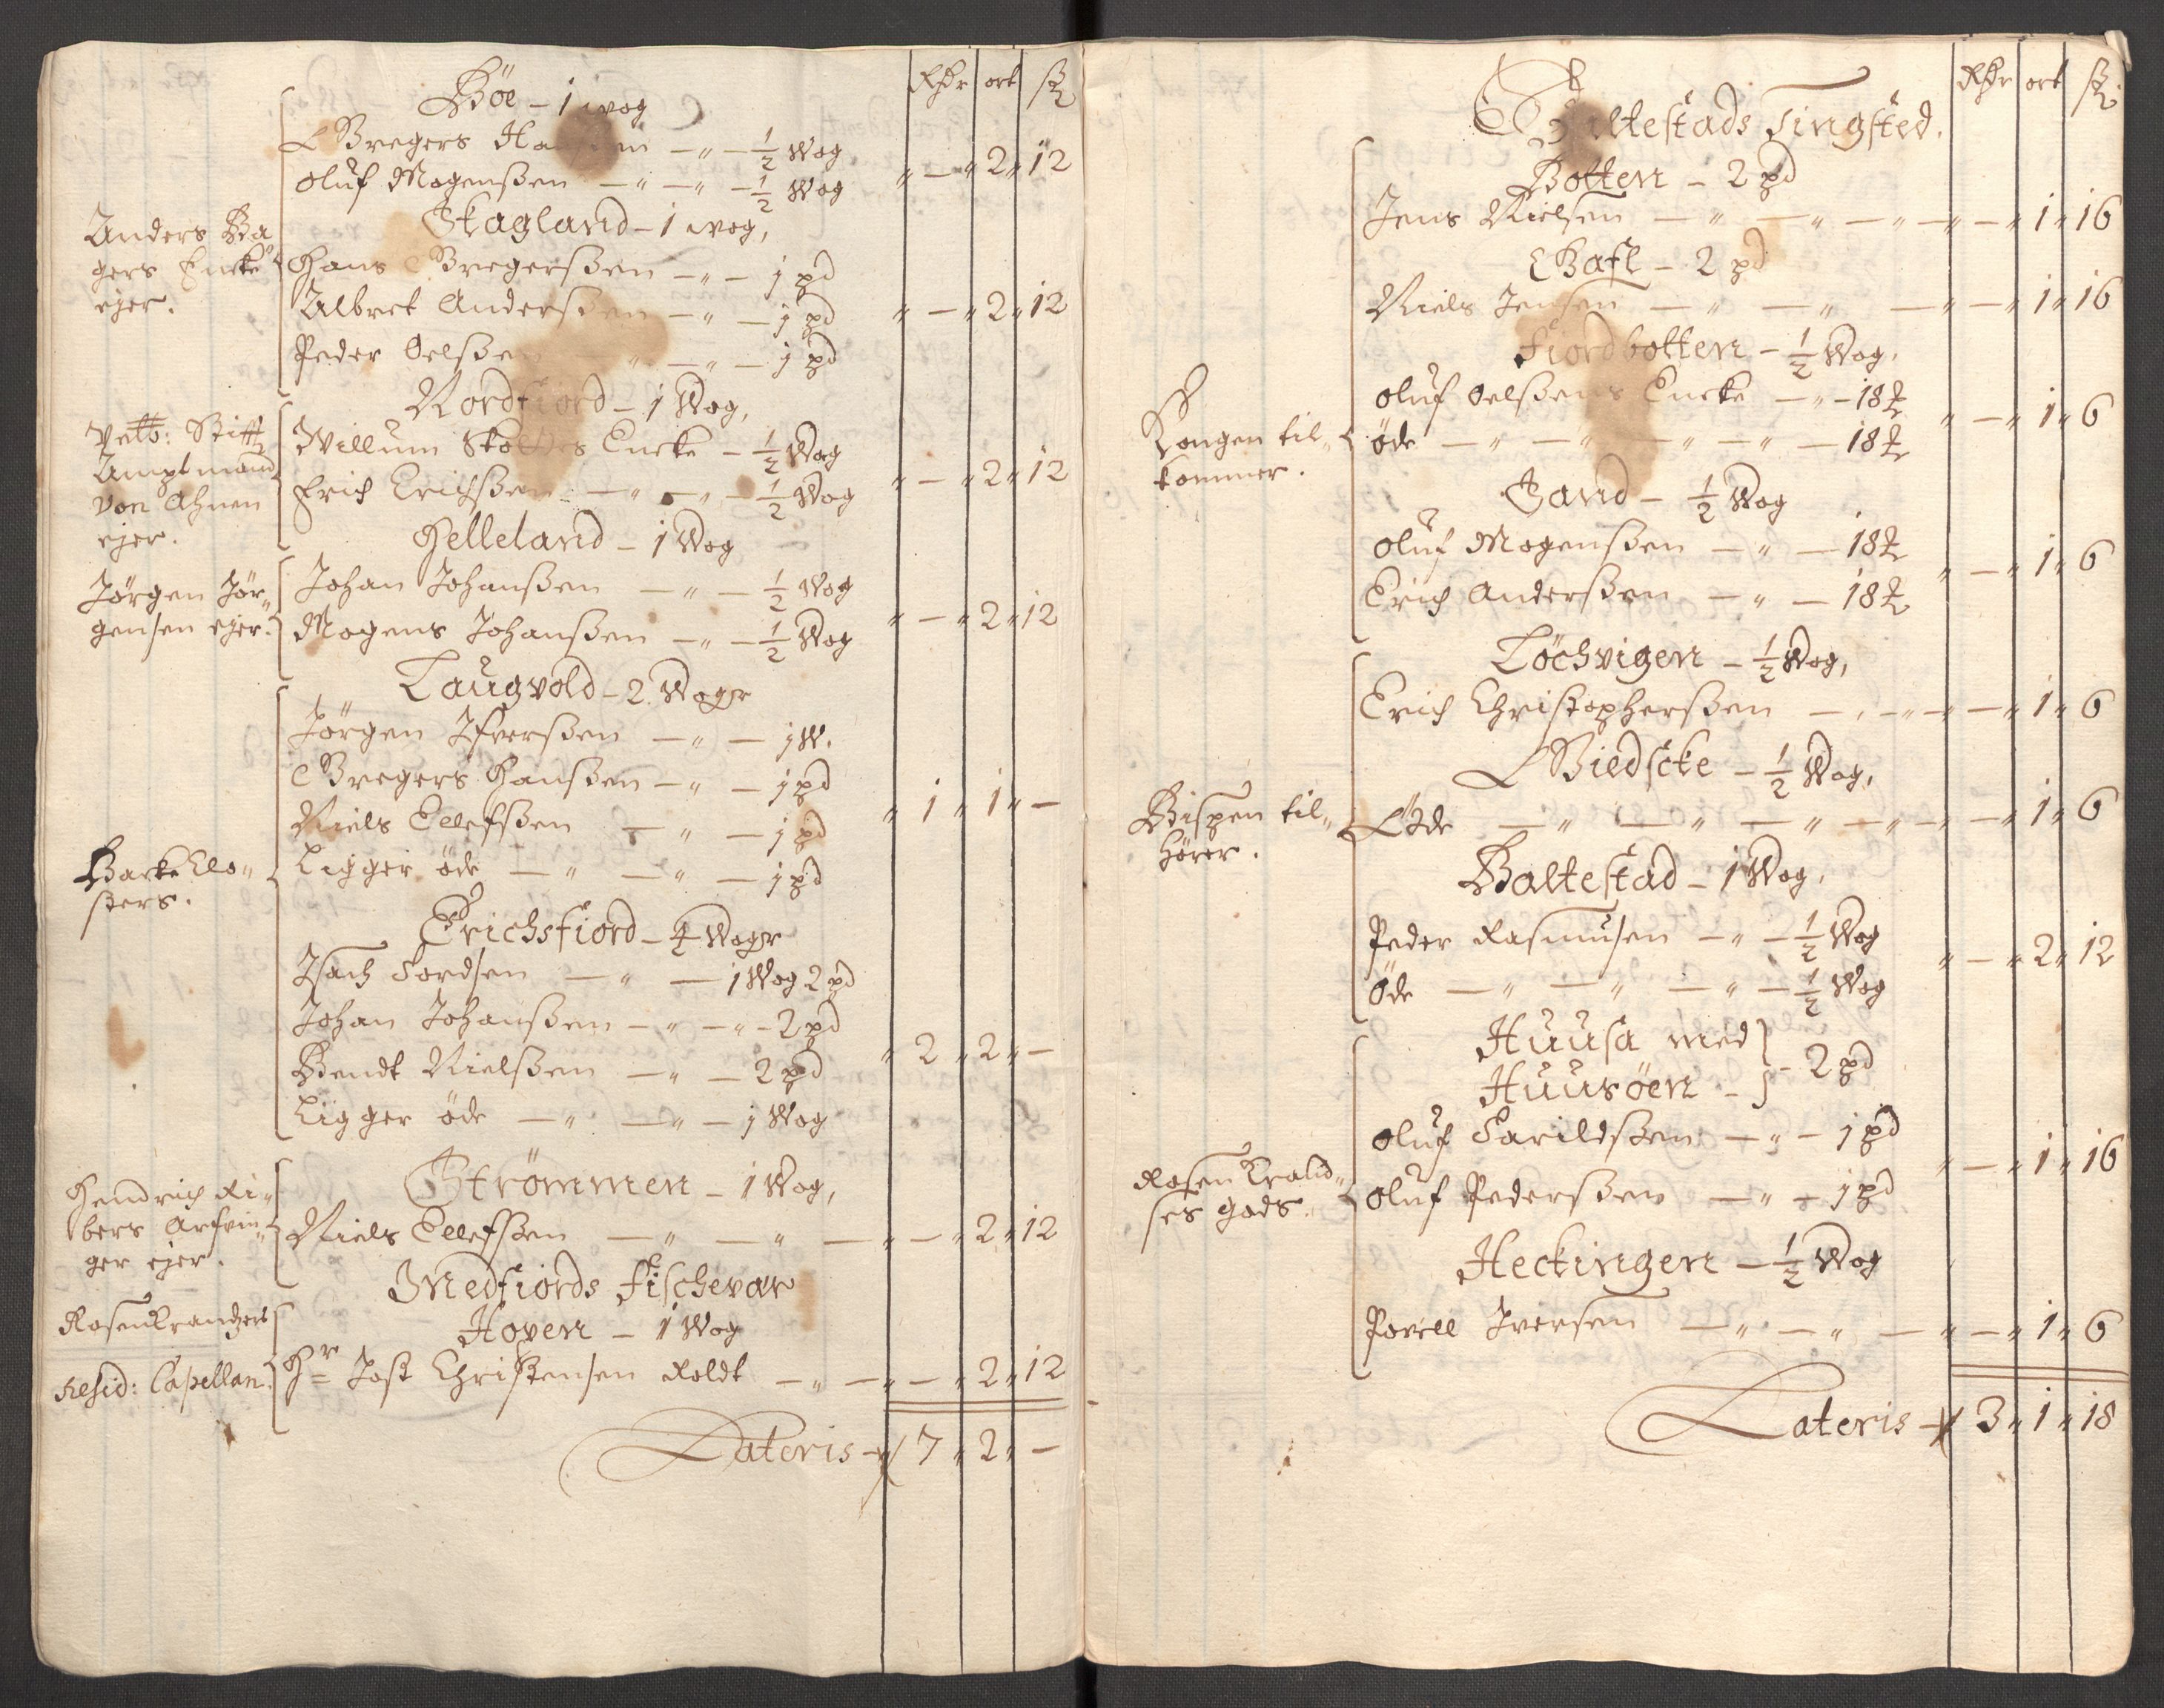 Rdr ort ß
Böe – 1 wog
Bregers Hanßen – " – ½ Wog
Oluf Mogenßen – " – " – ½ Wog " – " 2 " 12
Skagland – 1 wog,
Anders Ba
gers Encke
ejer.
Hans Bregersßen – " – 1 pd
Albret Andersßen – " – 1 pd " – " 2 " 12
Peder Oelßen " – " – 1 pd
Nordfiord – 1 Wog,
Velb: Stifft
Amptmand
von Ahnen
ejer.
Willum Skolders Encke – ½ Wog
Erich Erichßen – " – " – ½ Wog " – " 2 " 12
Helleland – 1 Wog
Jörgen Jör„
gensen ejer.
Johan Johanßen – " – ½ Wog
Mogens Johanßen – " – ½ Wog " – " 2 " 12
Laugvold – 2 Woger
Jörgen Ifversßen – " – 1 W.
Bregers Hansßen – " – 1 pd
Niels Ellefsßen – " – 1 pd " 1 " 1 " –
Ligger öde – " – " – 1 pd
Backe Clo„
sters.
Erichsfiord – 4 Woger
Isach Tordsen – " – 1 Wog 2 pd
Johan Johanßen – " – " – 2 pd
Bendt Nielßen – " – 2 pd " 2 " 2 " –
Ligger öde – " – " – 1 Wog
Hendrich Ri„
bers Arfvin„
ger ejer.
Strömmen – 1 Wog,
Niels Ellefsßen – " – " – " – " 2 " 12
Medfiords Fischevær
Rosenkrandzers
Hopen – 1 Wog
Resid: Capellan.
Hr Jost Christensen Roldt – " – " – " 2 " 12
Lateris – 7 " 2 " –
Rdr ort ß
Baltestads Tingsted.
Botten – 2 pd
Jens Nielsen – " – " – " – " – " 1 " 16
Bafl – 2 pd
Niels Jensen – " – " – " – " 1 " 16
Fiordbotten – ½ Wog.
Kongen til„
kommer.
Oluf Oelßens Encke – " – 18 ℔
öde – " – " – " – " – 18 ℔ " – " 1 " 6
Sand – ½ Wog
Oluf Mogenßen – " – 18 ℔
Erich Andersßen – " – 18 ℔ " – " 1 " 6
Löchvigen – ½ Wog,
Erich Christophersßen – " – " – " – " 1 " 6
Biedscke – ½ Wog,
Bispen til„
hörer.
Öde – " – " – " – " – " – " 1 " 6
Baltestad – 1 Wog,
Peder Rasmusen – " – ½ Wog
öde – " – " – " – ½ Wog " – " 2 " 12
Huusa med
Huusöen – } – 2 pd
Oluf Tarildsßen – " – 1 pd
Rosenkrand„
ses gods.
Oluf Pedersßen – " – 1 pd " – " 1 " 16
Heckingen – ½ Wog
Povell Iversen – " – " – " – " 1 " 6
Lateris – 3 " 1 " 18